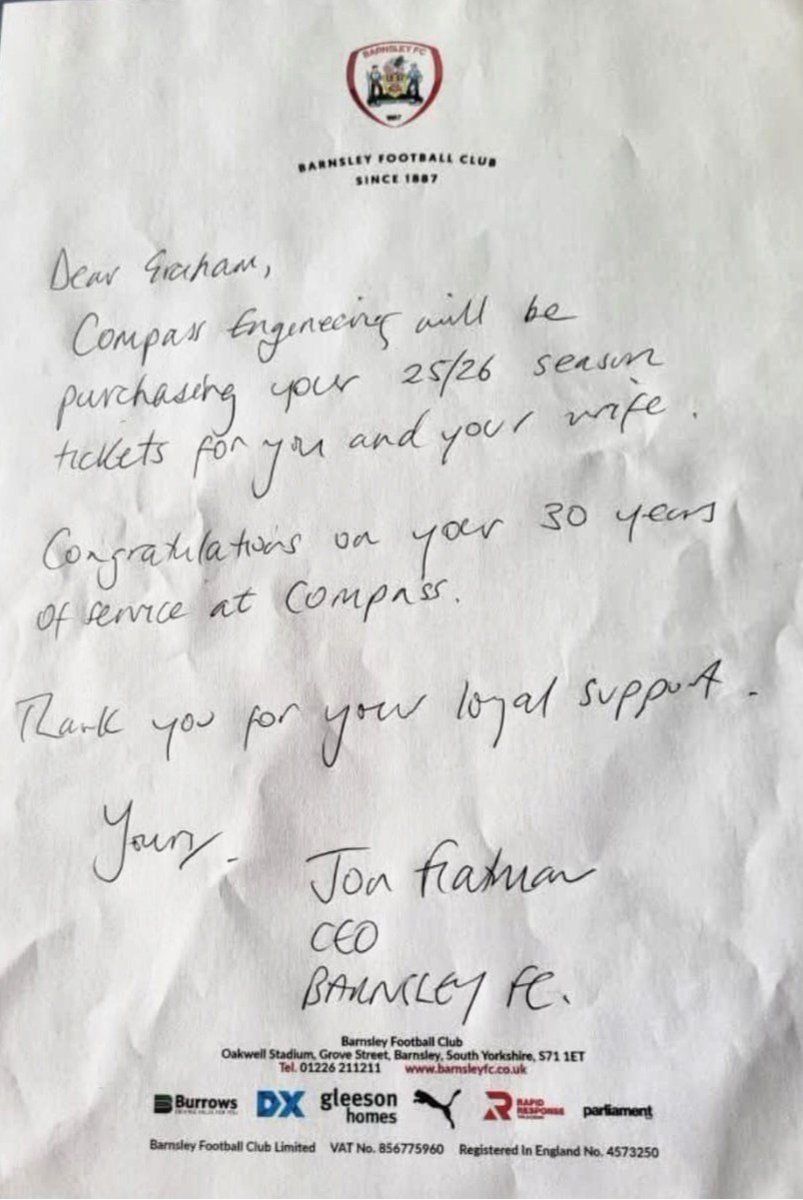 BARNSLEY FC
1887
BARNSLEY FOOTBALL CLUB
SINCE 1887
Dear Graham,
Compass Engineering will be
purchasing your 25/26 season
tickets for you and your wife.
Congratulations on your 30 years
of service at Compass.
Thank you for your loyal support.
Yours,
Jon Flatman
CEO
BARNSLEY FC.
Barnsley Football Club
Oakwell Stadium, Grove Street, Barnsley, South Yorkshire, S71 1ET
Tel. 01226 211211 www.barnsleyfc.co.uk
Burrows DX gleeson homes RAPID RESPONSE parliament
Barnsley Football Club Limited VAT No. 856775960 Registered In England No. 4573250